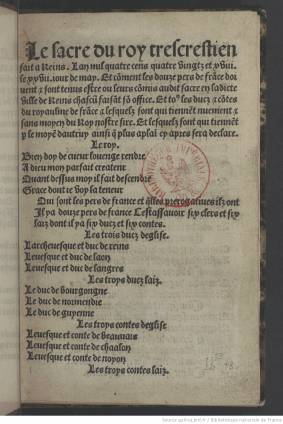 Le sacre du roy trescrestien
fait a Reins. Lan mil quatre cens quatre vingtz et xviii.
le xxvii. iour de may. Et cōment les douze pers de frāce doi
uent & sont tenus estre ou leurs cōmis audit sacre en ladicte
ville de Reins chascū faisāt sō office. Et tous les ducz & cōtes
du royaulme de frāce & lesquelz sont qui tiennēt nuement &
sans moyen du Roy nostre sire. Et lesquelz sont qui tiennēt
p le moyē dautruy ainsi q plus aplai cy apres sera declare.
Le roy.
Bien doy de cueur louenge rendre
A dieu mon parfait createur
Quant dessus moy il fait descendre
Grace dont ie voy la teneur
Qui sont les pers de france et q̄lles prerogatiues ilz ont
Il y a douze pers de france Cestassauoir six clers et six
laiz dont il ya six ducz et six contes.
Les trois ducz deglise.
Larcheuesque et duc de reins
Leuesque et duc de laon
Leuesque et duc de langres
Les troys ducz laiz.
Le duc de bourgongne
Le duc de normendie
Le duc de guyenne
Les troys contes deglise
Leuesque et conte de beauuais
Leuesque et conte de chaalon
Leuesque et conte de noyon
Les troys contes laiz.
Source gallica.bnf.fr / Bibliothèque nationale de France